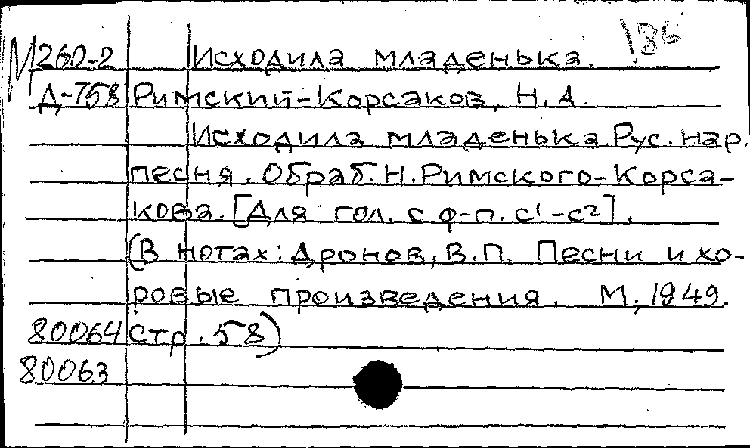 М260-2 Исходила младенька. 186
Д-758 Римский-Корсаков, Н.А.
Исходила младенька. Рус. нар.
песня. Обраб. Н. Римского-Корса-
кова. [Для гол. с ф-п. c¹-c²].
(В нотах: Дронов, В.П. Песни и хо-
ровые произведения. М., 1949.
80064 Стр. 58)
80063